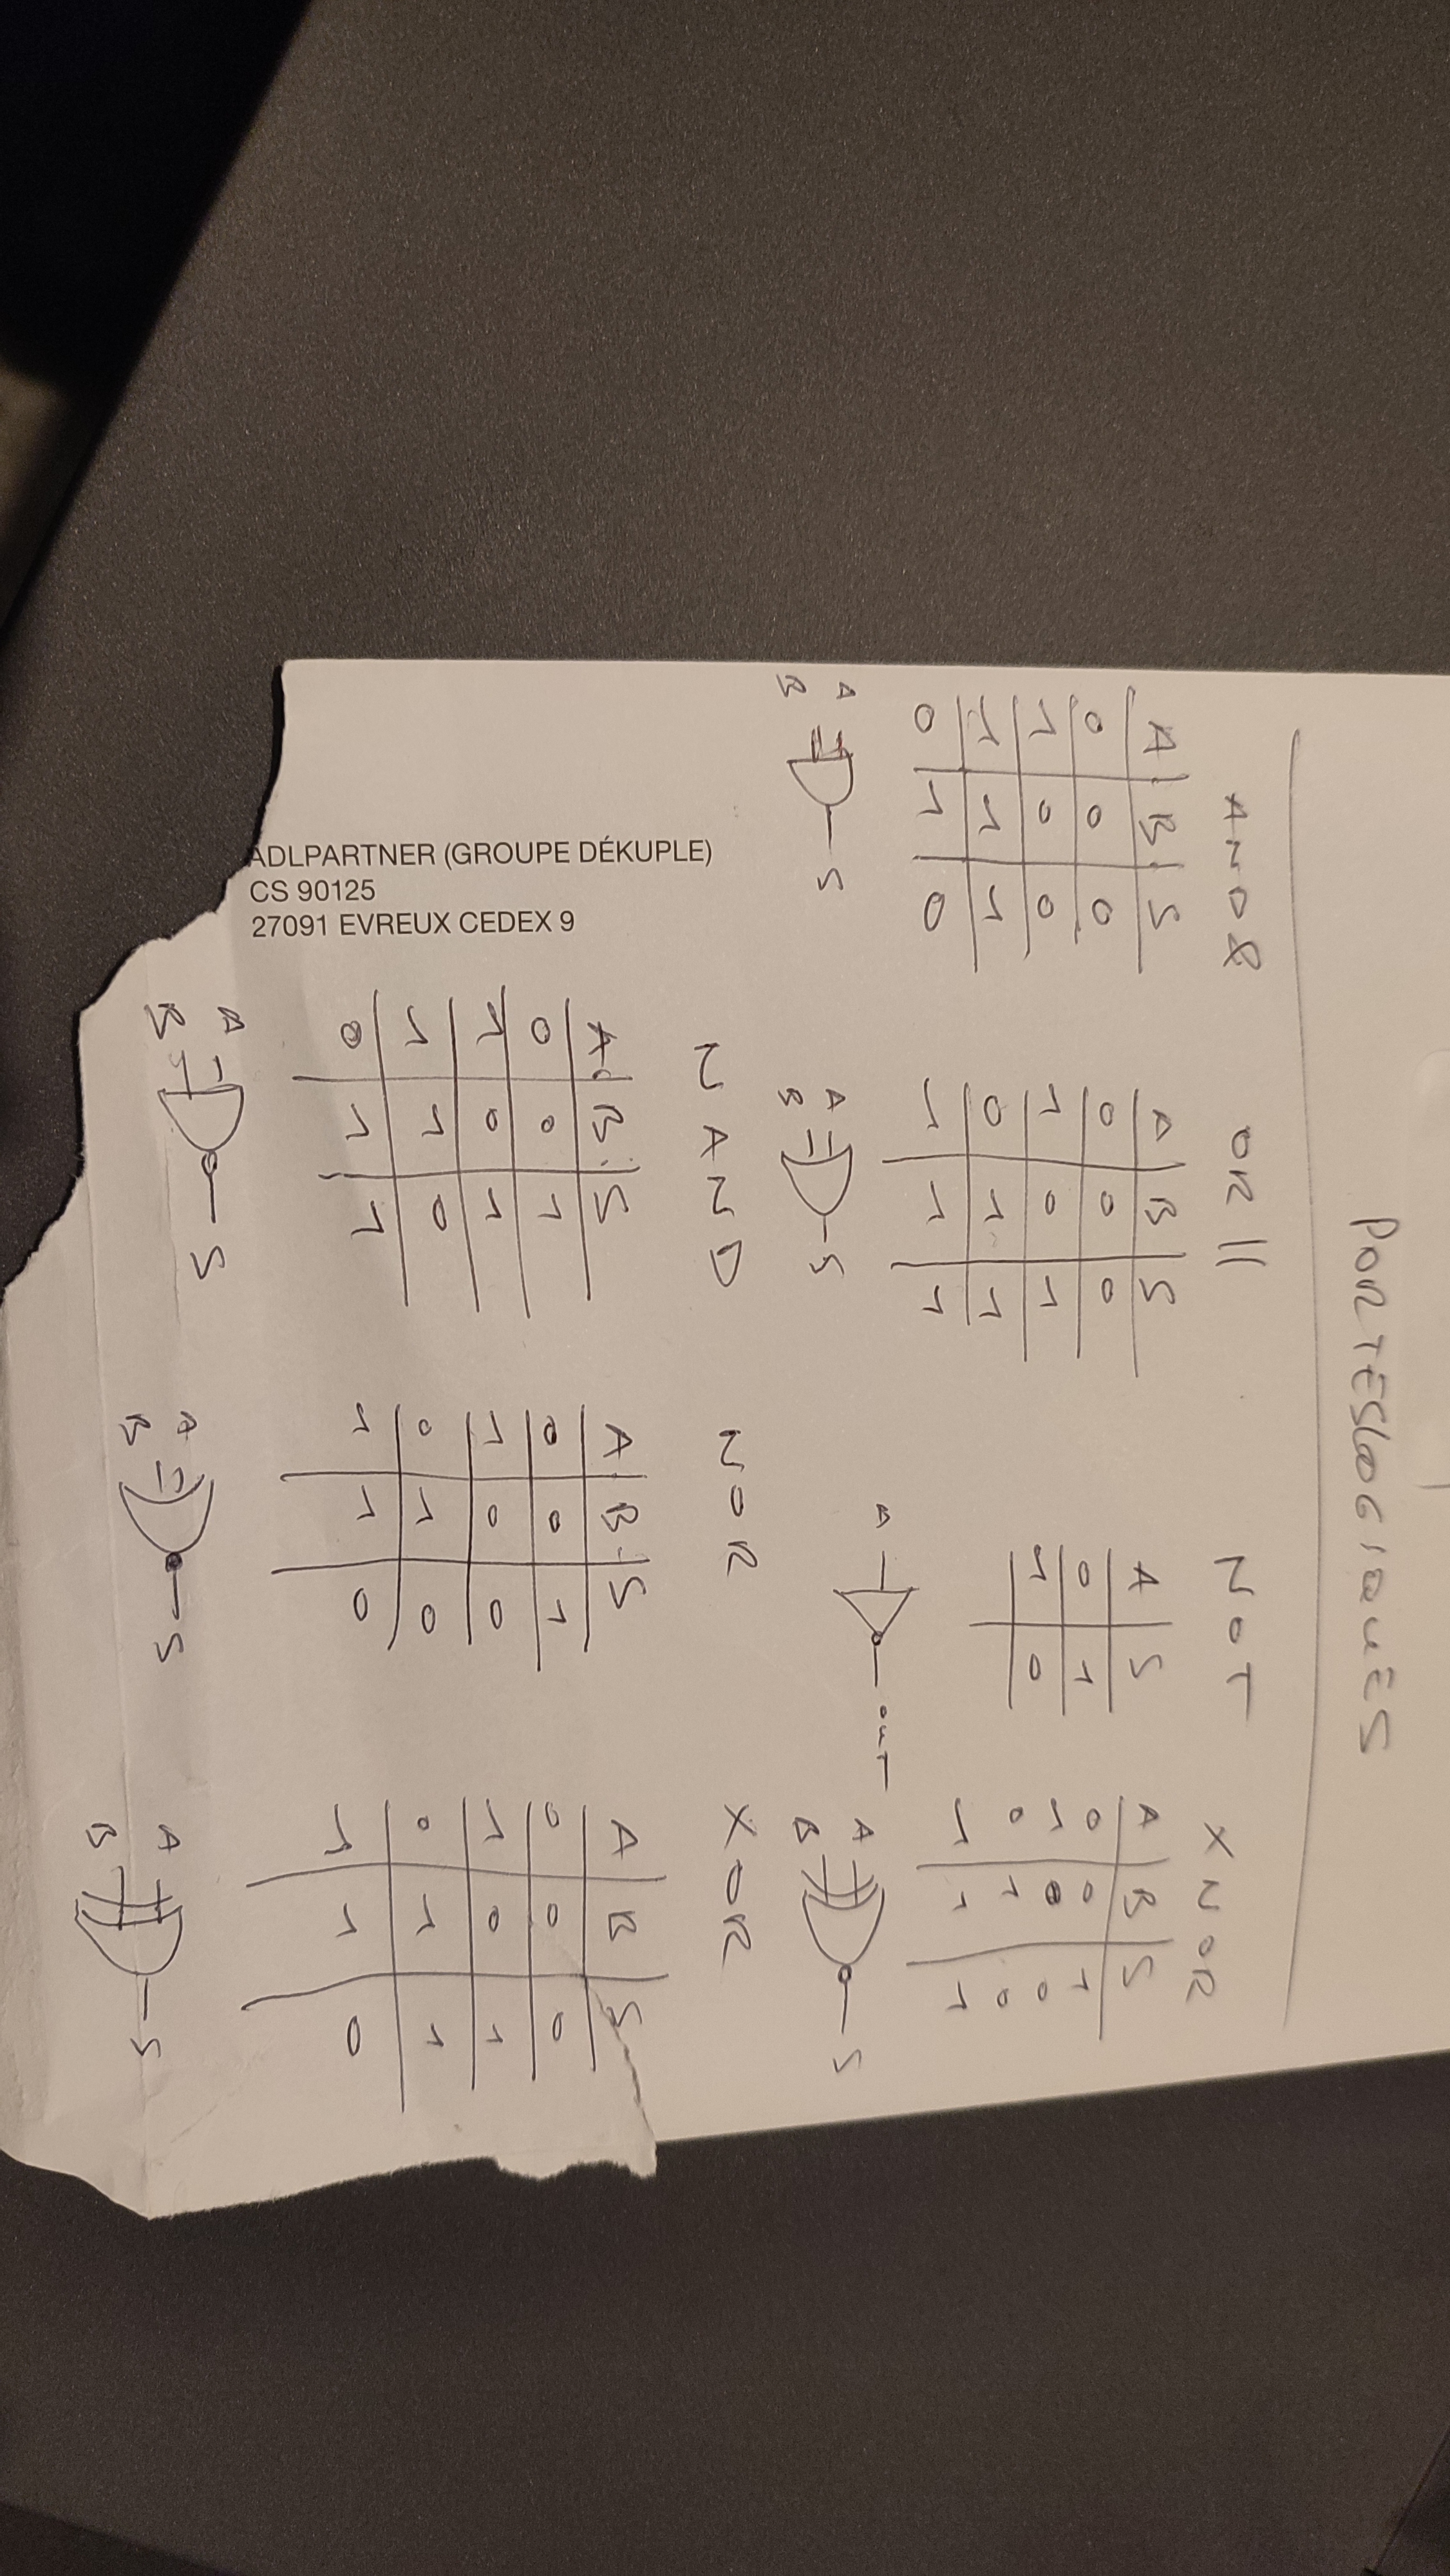 PORTES LOGIQUES
AND &
A B S
0 0 0
1 0 0
1 1 1
0 1 0
A
B
S
OR ||
A B S
0 0 0
1 0 1
0 1 1
1 1 1
A
B
S
NOT
A S
0 1
1 0
A OUT
XNOR
A B S
0 0 1
1 0 0
0 1 0
1 1 1
A
B
S
NAND
A B S
0 0 1
1 0 1
1 1 0
0 1 1
A
B
S
NOR
A B S
0 0 1
1 0 0
0 1 0
1 1 0
A
B
S
XOR
A B S
0 0 0
1 0 1
0 1 1
1 1 0
A
B
S
ADLPARTNER (GROUPE DÉKUPLE)
CS 90125
27091 EVREUX CEDEX 9